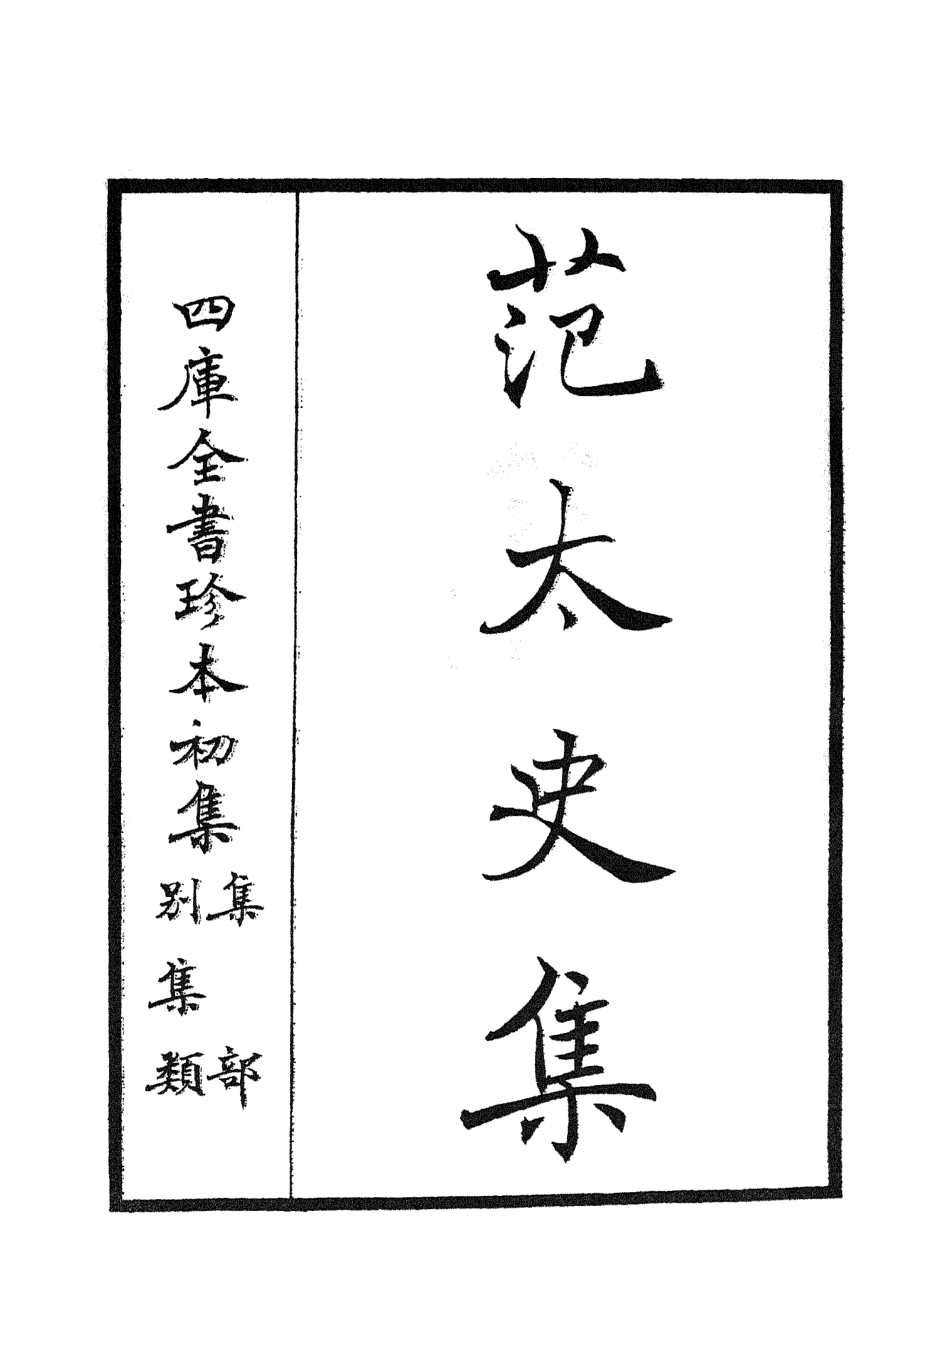 范太史集
四庫全書珍本初集
集部
別集類